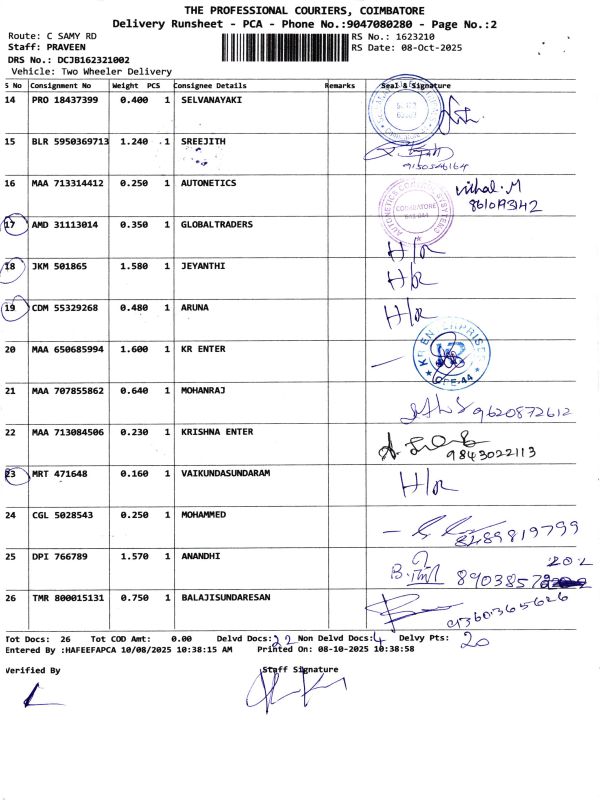 THE PROFESSIONAL COURIERS, COIMBATORE
Delivery Runsheet - PCA - Phone No.:9047080280 - Page No.:2
Route: C SAMY RD
RS No.: 1623210
Staff: PRAVEEN
RS Date: 08-Oct-2025
DRS No.: DCJB162321002
Vehicle: Two Wheeler Delivery
S No Consignment No Weight PCS Consignee Details Remarks Seal & Signature
14 PRO 18437399 0.400 1 SELVANAYAKI
15 BLR 5950369713 1.240 1 SREEJITH
9150546164
16 MAA 713314412 0.250 1 AUTONETICS
COIMBATORE
Vithal.M
17 AMD 31113014 0.350 1 GLOBALTRADERS H/R
18 JKM 501865 1.580 1 JEYANTHI H/R
19 CDM 55329268 0.480 1 ARUNA H/R
20 MAA 650685994 1.600 1 KR ENTER
KR ENTERPRISES
CBE-44
21 MAA 707855862 0.640 1 MOHANRAJ 9620872612
22 MAA 713084506 0.230 1 KRISHNA ENTER 9843022113
23 MRT 471648 0.160 1 VAIKUNDASUNDARAM H/R
24 CGL 5028543 0.250 1 MOHAMMED 8489819799
25 DPI 766789 1.570 1 ANANDHI
202
B. 8903857
26 TMR 800015131 0.750 1 BALAJISUNDARESAN 9360365626
Tot Docs: 26 Tot COD Amt: 0.00 Delvd Docs: 22 Non Delvd Docs: 4 Delvy Pts: 20
Entered By :HAFEEFAPCA 10/08/2025 10:38:15 AM Printed On: 08-10-2025 10:38:58
Verified By Staff Signature